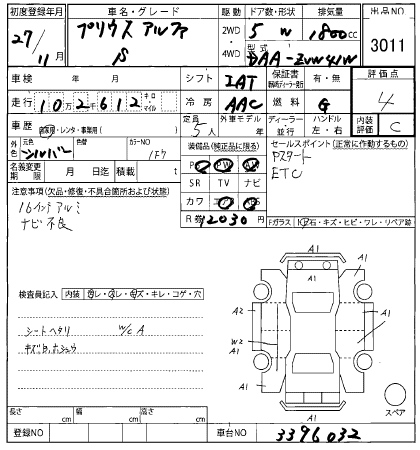 初度登録年月 車名・グレード 駆動 ドア数・形状 排気量 出品NO
27/11月 プリウス アルファ S 2WD 4WD 5 W 1800cc 3011
型式 DAA-ZVW41W
車検 年 月 シフト IAT 保証書 有・無 評価点 4
走行 10万2千612 キロ・マイル 冷房 AAC 燃料 G
車歴 自家用・レンタ・事業用( ) 定員 5人 外車モデル 年 ディーラー 並行 ハンドル 左・右 内装評価 C
外色 元色 シルバー 色替 カラーNO 1F7
装備品(純正品に限る) セールスポイント(正常に作動するもの)
名義変更期限 月 日迄 積載量 t
PS PW AW Pスタート
SR TV ナビ ETC
カワ エアB ABS
R券 12030円
注意事項(欠品・修復・不具合箇所および状態)
16インチアルミ
ナビ不良
Fガラス 石・キズ・ヒビ・ワレ・リペア跡
検査員記入 内装 スレ・コレ・キズ・キレ・コゲ・穴
シートヘタリ W/C A
キズ、凹、ホシュウ
A1
A1
A1
A2
A1
W2
A1
A1
A1
A1
スペア
長さ cm 幅 cm 高さ cm
登録NO 車台NO 3396032